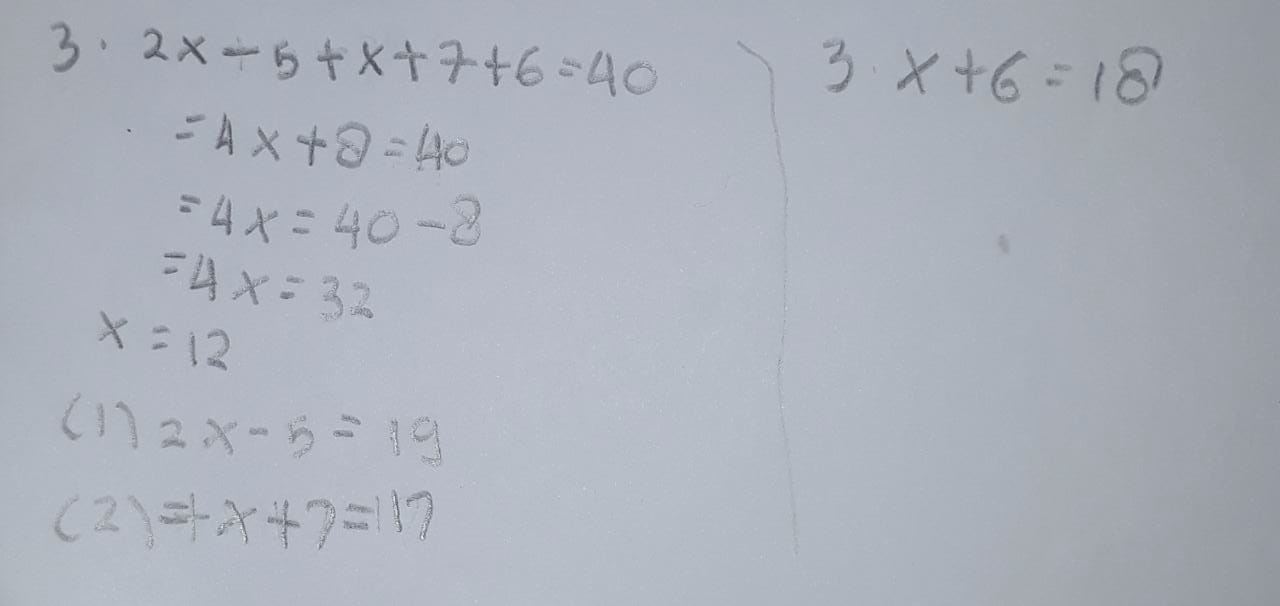 3. 2x-5+x+7+6=40
=4x+8=40
=4x=40-8
=4x=32
x=12
(1) 2x-5=19
(2) =+x+7=17
3. x+6=18